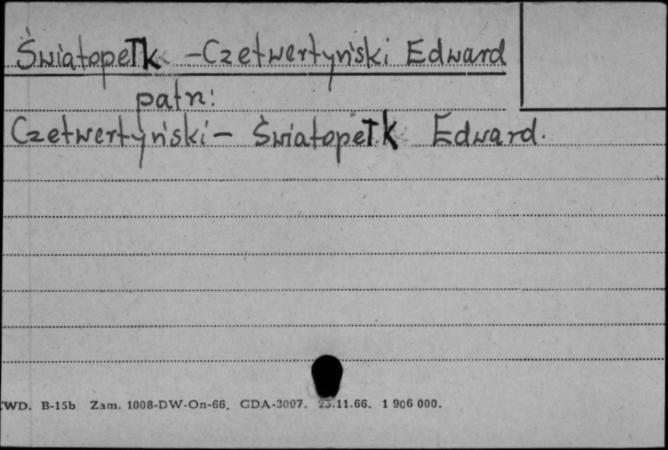 Światopełk - Czetwertyński Edward
patrz:
Czetwertyński - Światopełk Edward.
WD. B-15b Zam. 1008-DW-On-66. GDA-3097. 23.11.66. 1 906 000.